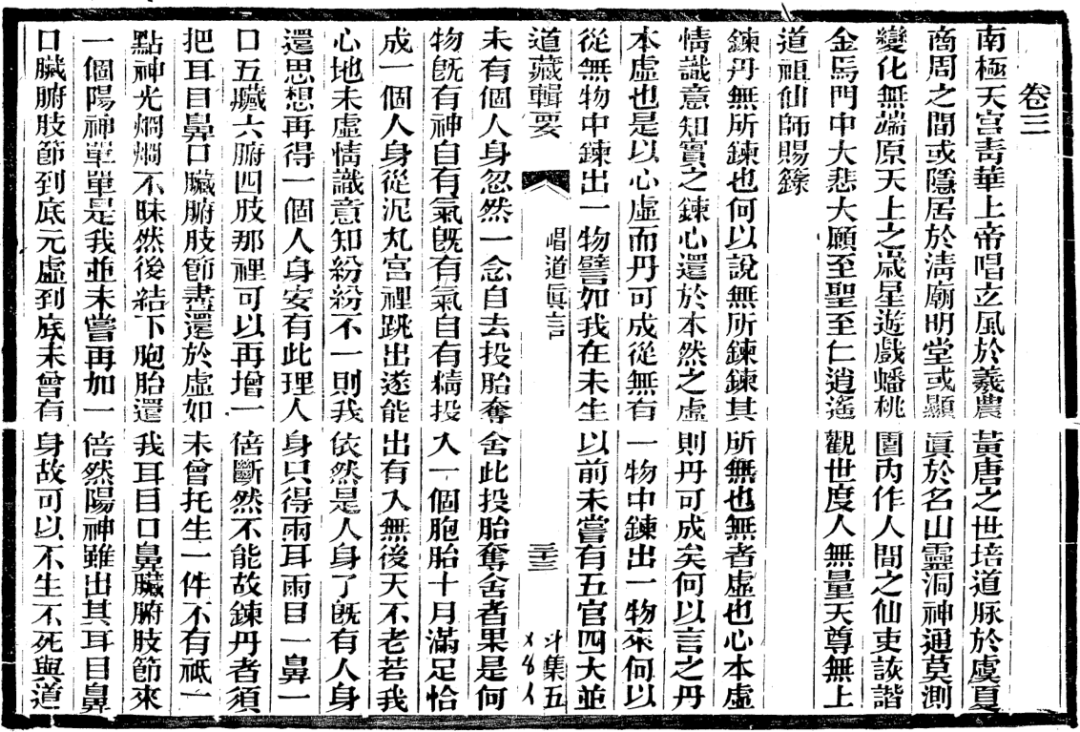 卷三
南極天宮青華上帝唱立風於羲農黃唐之世培道脉於虞夏
商周之間或隱居於淸廟明堂或顯眞於名山靈洞神通莫測
變化無端原天上之歲星遊戲蟠桃園內作人間之仙吏詼諧
金馬門中大悲大願至聖至仁逍遙觀世度人無量天尊無上
道祖仙師賜籙
鍊丹無所鍊也何以說無所鍊鍊其所無也無者虛也心本虛
情識意知實之鍊心還於本然之虛則丹可成矣何以言之丹
本虛也是以心虛而丹可成從無有一物中鍊出一物來何以
從無物中鍊出一物譬如我在未生以前未嘗有五官四大並
道藏輯要 唱道眞言 三十三 斗集五
未有個人身忽然一念自去投胎奪舍此投胎奪舍者果是何
物旣有神自有氣旣有氣自有精投入一個胞胎十月滿足恰
成一個人身從泥丸宮裡跳出遂能出有入無後天不老若我
心地未虛情識意知紛紛不一則我依然是人身了旣有人身
還思想再得一個人身安有此理人身只得兩耳兩目一鼻一
口五臟六腑四肢那裡可以再增一倍斷然不能故鍊丹者須
把耳目鼻口臟腑肢節盡還於虛如未曾托生一件不有祇一
點神光烱烱不昧然後結下胞胎還我耳目口鼻臟腑肢節來
一個陽神單單是我並未嘗再加一倍然陽神雖出其耳目鼻
口臟腑肢節到底元虛到底未曾有身故可以不生不死與道